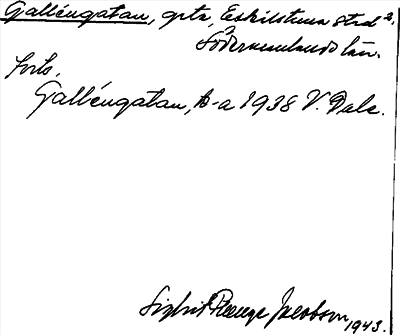 Galléngatan, gata, Eskilstuna stad 2.
Södermanlands län.
forts.
Galléngatan, b-a 1938 V. Dale.
Jacobson 1943.